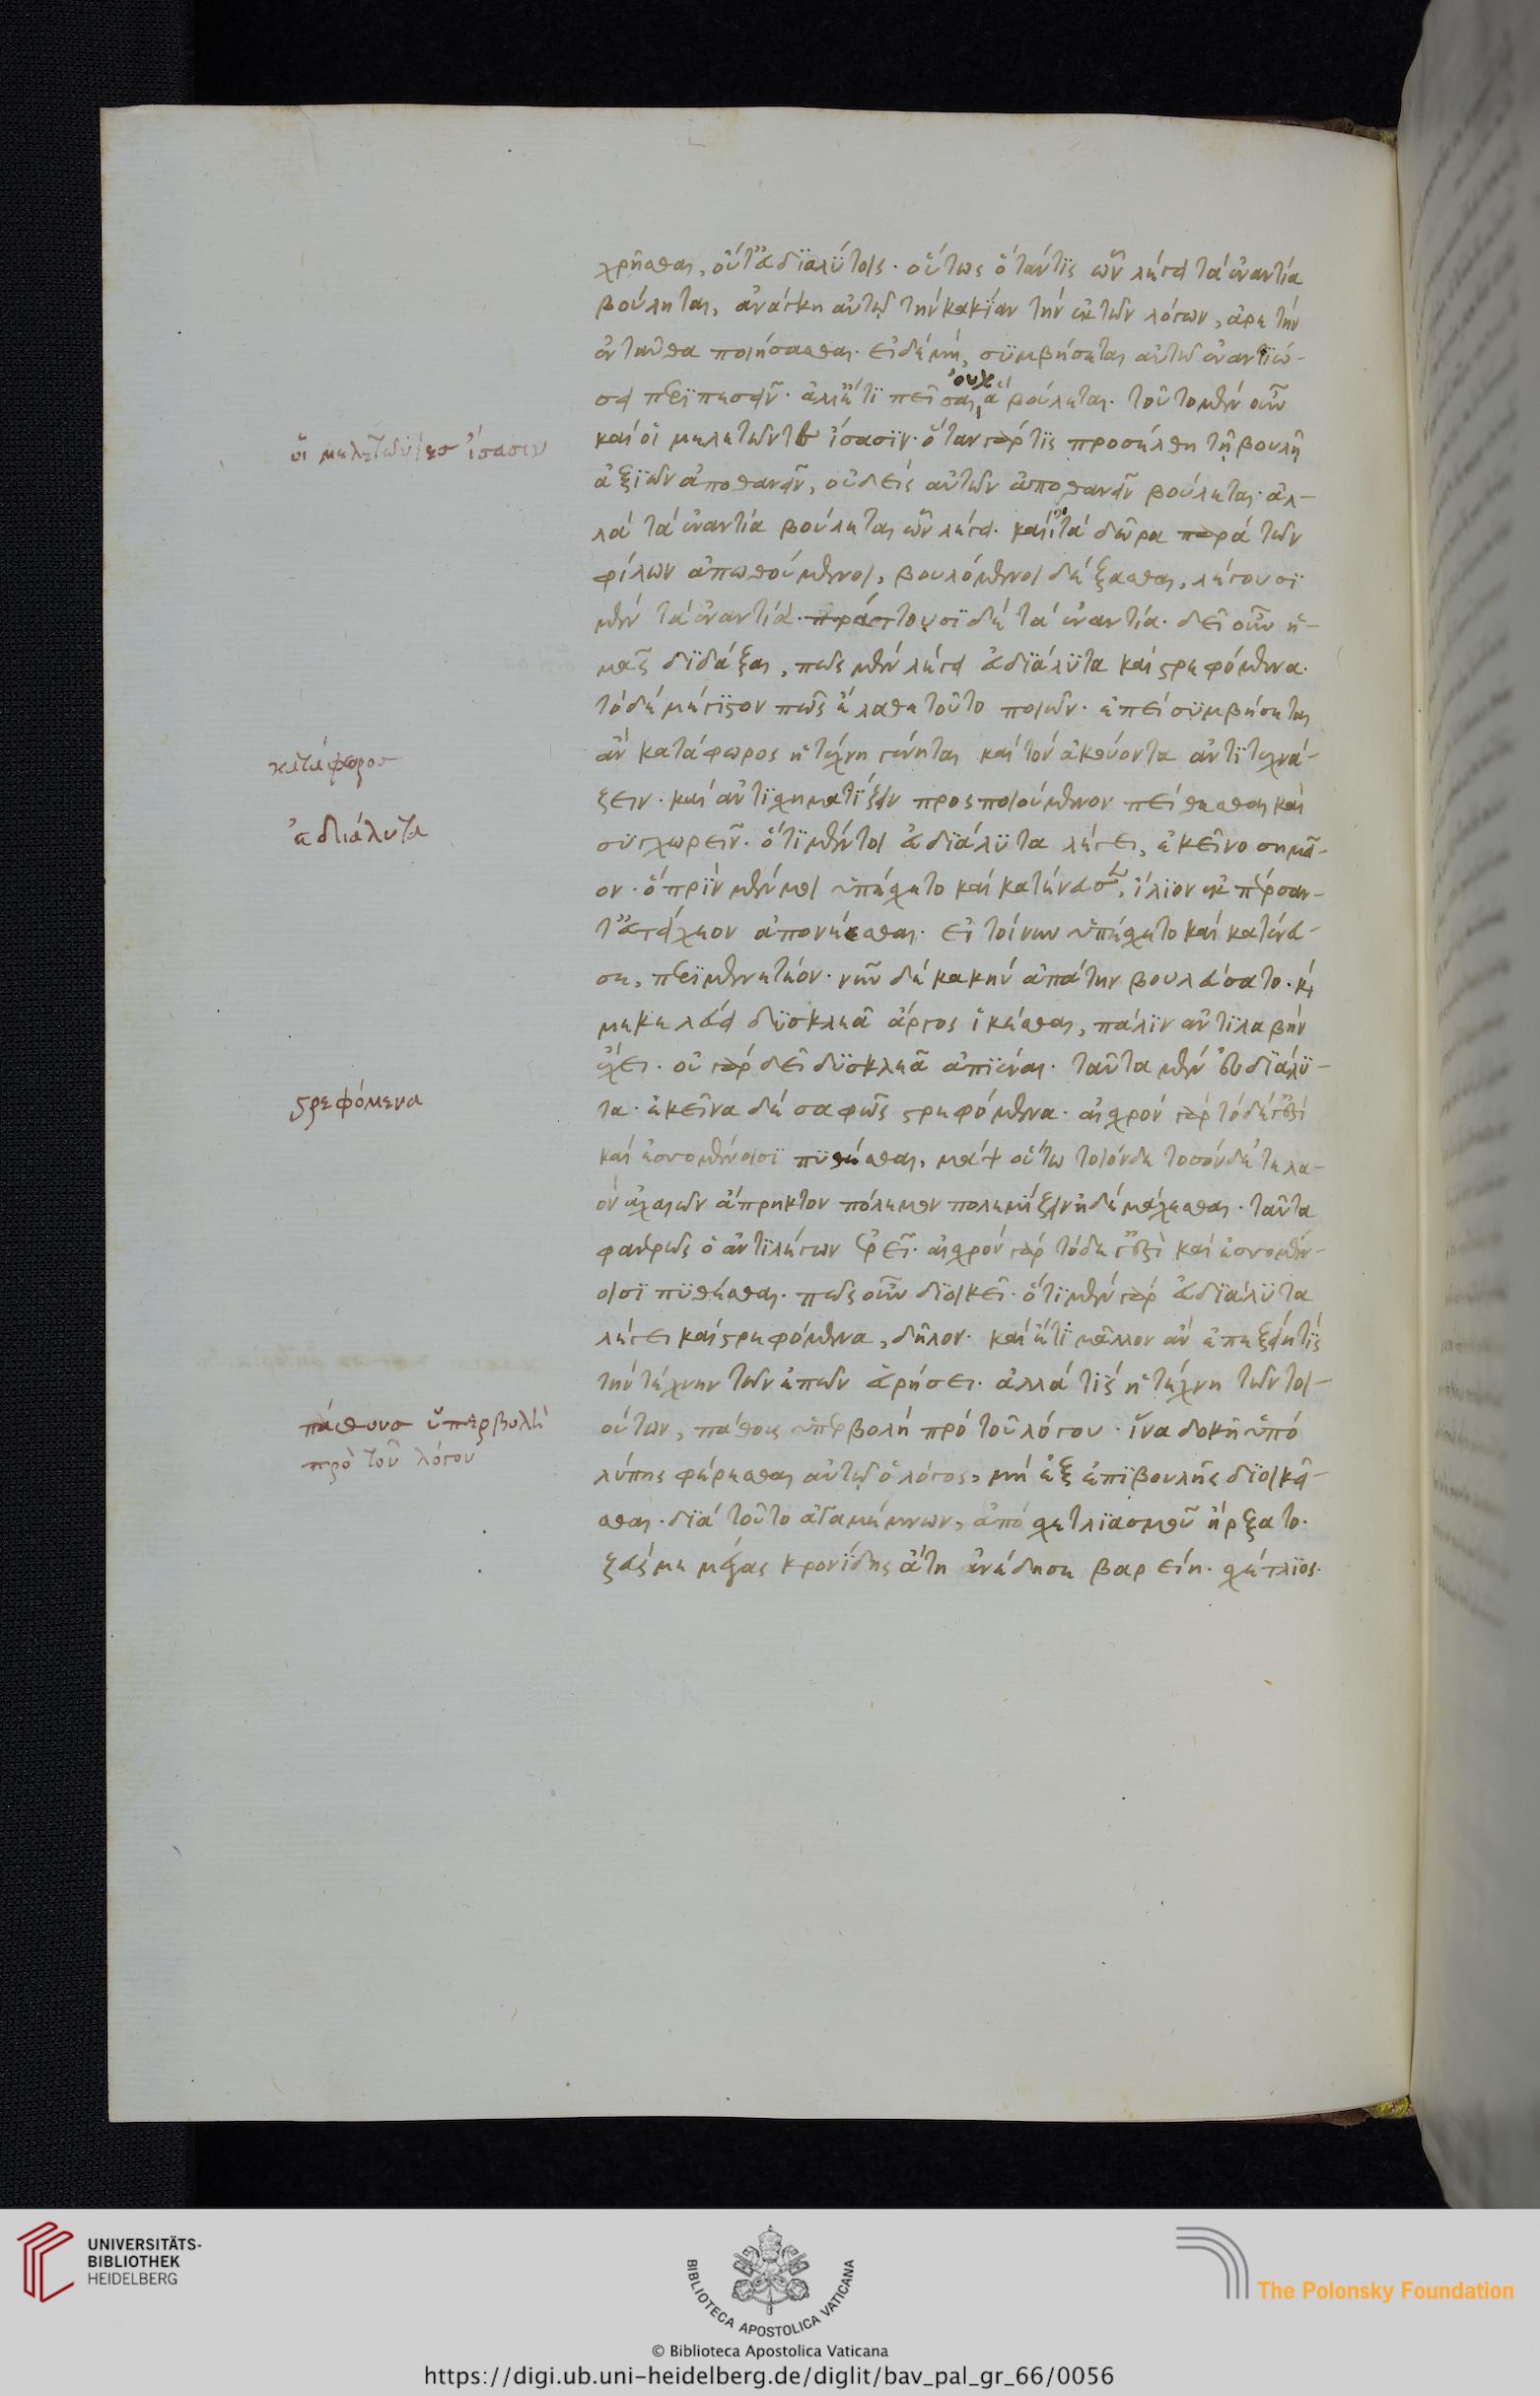 χρῆσθαι, οὔτ' εὐδιαλύτοις. οὕτως ὅταν τὶς ὧν λέγει τὰ ἐναντία
βούληται, ἀνάγκη αὐτῷ τὴν κακίαν τὴν ἐκ τῶν λόγων, ἀρετὴν
ἐνταῦθα ποιήσασθαι. εἰ δὲ μὴ, συμβήσεται αὐτῷ ἐναντιώ-
σει περιπεσεῖν. ἀλλ' ἔτι πεῖσαι οὐχ ἃ βούλεται. τοῦτο μὲν οὖν
καὶ οἱ μελετῶντες ἴσασιν. ὅταν γάρ τις προσέλθη τῇ βουλῇ
οἱ μελετῶντεσ ἴσασιν
ἀξιῶν ἀποθανεῖν, οὐδεὶς αὐτῶν ἀποθανεῖν βούλεται. ἀλ-
λὰ τὰ ἐναντία βούλεται ὧν λέγει. καὶ τὰ δῶρα παρὰ τῶν
φίλων ἀπωθούμενοι, βουλόμενοι δέξασθαι, λέγουσι
μὲν τὰ ἐναντία. πράττουσι δὲ τὰ ἐναντία. δεῖ οὖν ἡ-
μᾶς διδάξαι, πῶς μὲν λέγει εὐδιάλυτα καὶ στρεφόμενα.
τὸ δὲ μέγιστον πῶς ἔλαθε τοῦτο ποιῶν. ἐπεὶ συμβήσεται
ἂν κατάφωρος ἡ τέχνη γένηται καὶ τὸν ἀκούοντα ἀντιτεχνά-
κατάφωροσ
ζειν. καὶ ἀντισχηματίζειν προσποιούμενον πείθεσθαι καὶ
συγχωρεῖν. ὅτι μέντοι εὐδιάλυτα λέγει, ἐκεῖνο σημεῖ-
εὐδιάλυτα
ον. ὁ πρὶν μέν μοι ὑπέσχετο καὶ κατένευσεν, ἴλιον ἐκπέρσαν-
τ' εὐτείχεον ἀπονέεσθαι. εἰ τοίνυν ὑπέσχετο καὶ κατένευ-
σε, περιμενετέον. νῦν δὲ κακὴν ἀπάτην βουλεύσατο. καί
με κελεύει δυσκλεᾶ ἄργος ἱκέσθαι, πάλιν ἀντιλαβὴν
ἔχει. οὐ γὰρ δεῖ δυσκλεᾶ ἀπιέναι. ταῦτα μὲν εὐδιάλυ-
τα. ἐκεῖνα δὲ σαφῶς στρεφόμενα. αἰσχρὸν γὰρ τόδε γ' ἐστὶ
στρεφόμενα
καὶ ἐσσομένοισι πυθέσθαι, μὰψ οὕτω τοιόνδε τοσόνδέ τε λα-
ὸν ἀχαιῶν ἄπρηκτον πόλεμον πολεμίζειν ἠδὲ μάχεσθαι. ταῦτα
φανερῶς ὁ ἀντιλέγων ἐρεῖ. αἰσχρὸν γὰρ τόδε γ' ἐστὶ καὶ ἐσσομέν-
οισι πυθέσθαι. πῶς οὖν διοικεῖ. ὅτι μὲν γὰρ εὐδιάλυτα
λέγει καὶ στρεφόμενα, δῆλον. καὶ ἔτι μᾶλλον ἂν ἐπεξείη τὶς
τὴν τέχνην τῶν ἐπῶν εὑρήσει. ἀλλὰ τίς ἡ τέχνη τῶν τοι-
ούτων, πάθους ὑπερβολὴ πρὸ τοῦ λόγου. ἵνα δοκῇ ὑπὸ
πάθουσ ὑπερβολὴ
πρὸ τοῦ λόγου
λύπης φέρεσθαι αὐτῷ ὁ λόγος, μὴ ἐξ ἐπιβουλῆς διοικεῖ-
σθαι. διὰ τοῦτο ἀγαμέμνων, ἀπὸ σχετλιασμοῦ ἤρξατο.
ζεύς με μέγας κρονίδης ἄτη ἐνέδησε βαρείη. σχέτλιος.
UNIVERSITÄTS-
BIBLIOTHEK
HEIDELBERG
BIBLIOTECA APOSTOLICA VATICANA
The Polonsky Foundation
© Biblioteca Apostolica Vaticana
https://digi.ub.uni-heidelberg.de/diglit/bav_pal_gr_66/0056